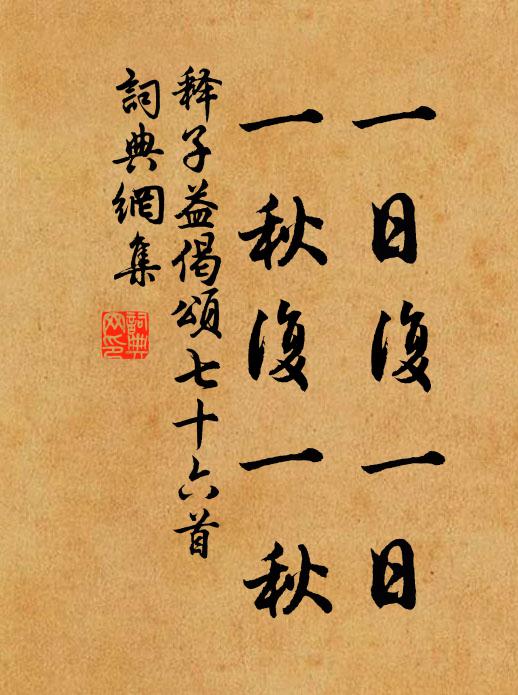 一日復一日
一秋復一秋
释子益偈頌七十六首
詞典網集
詞典網印